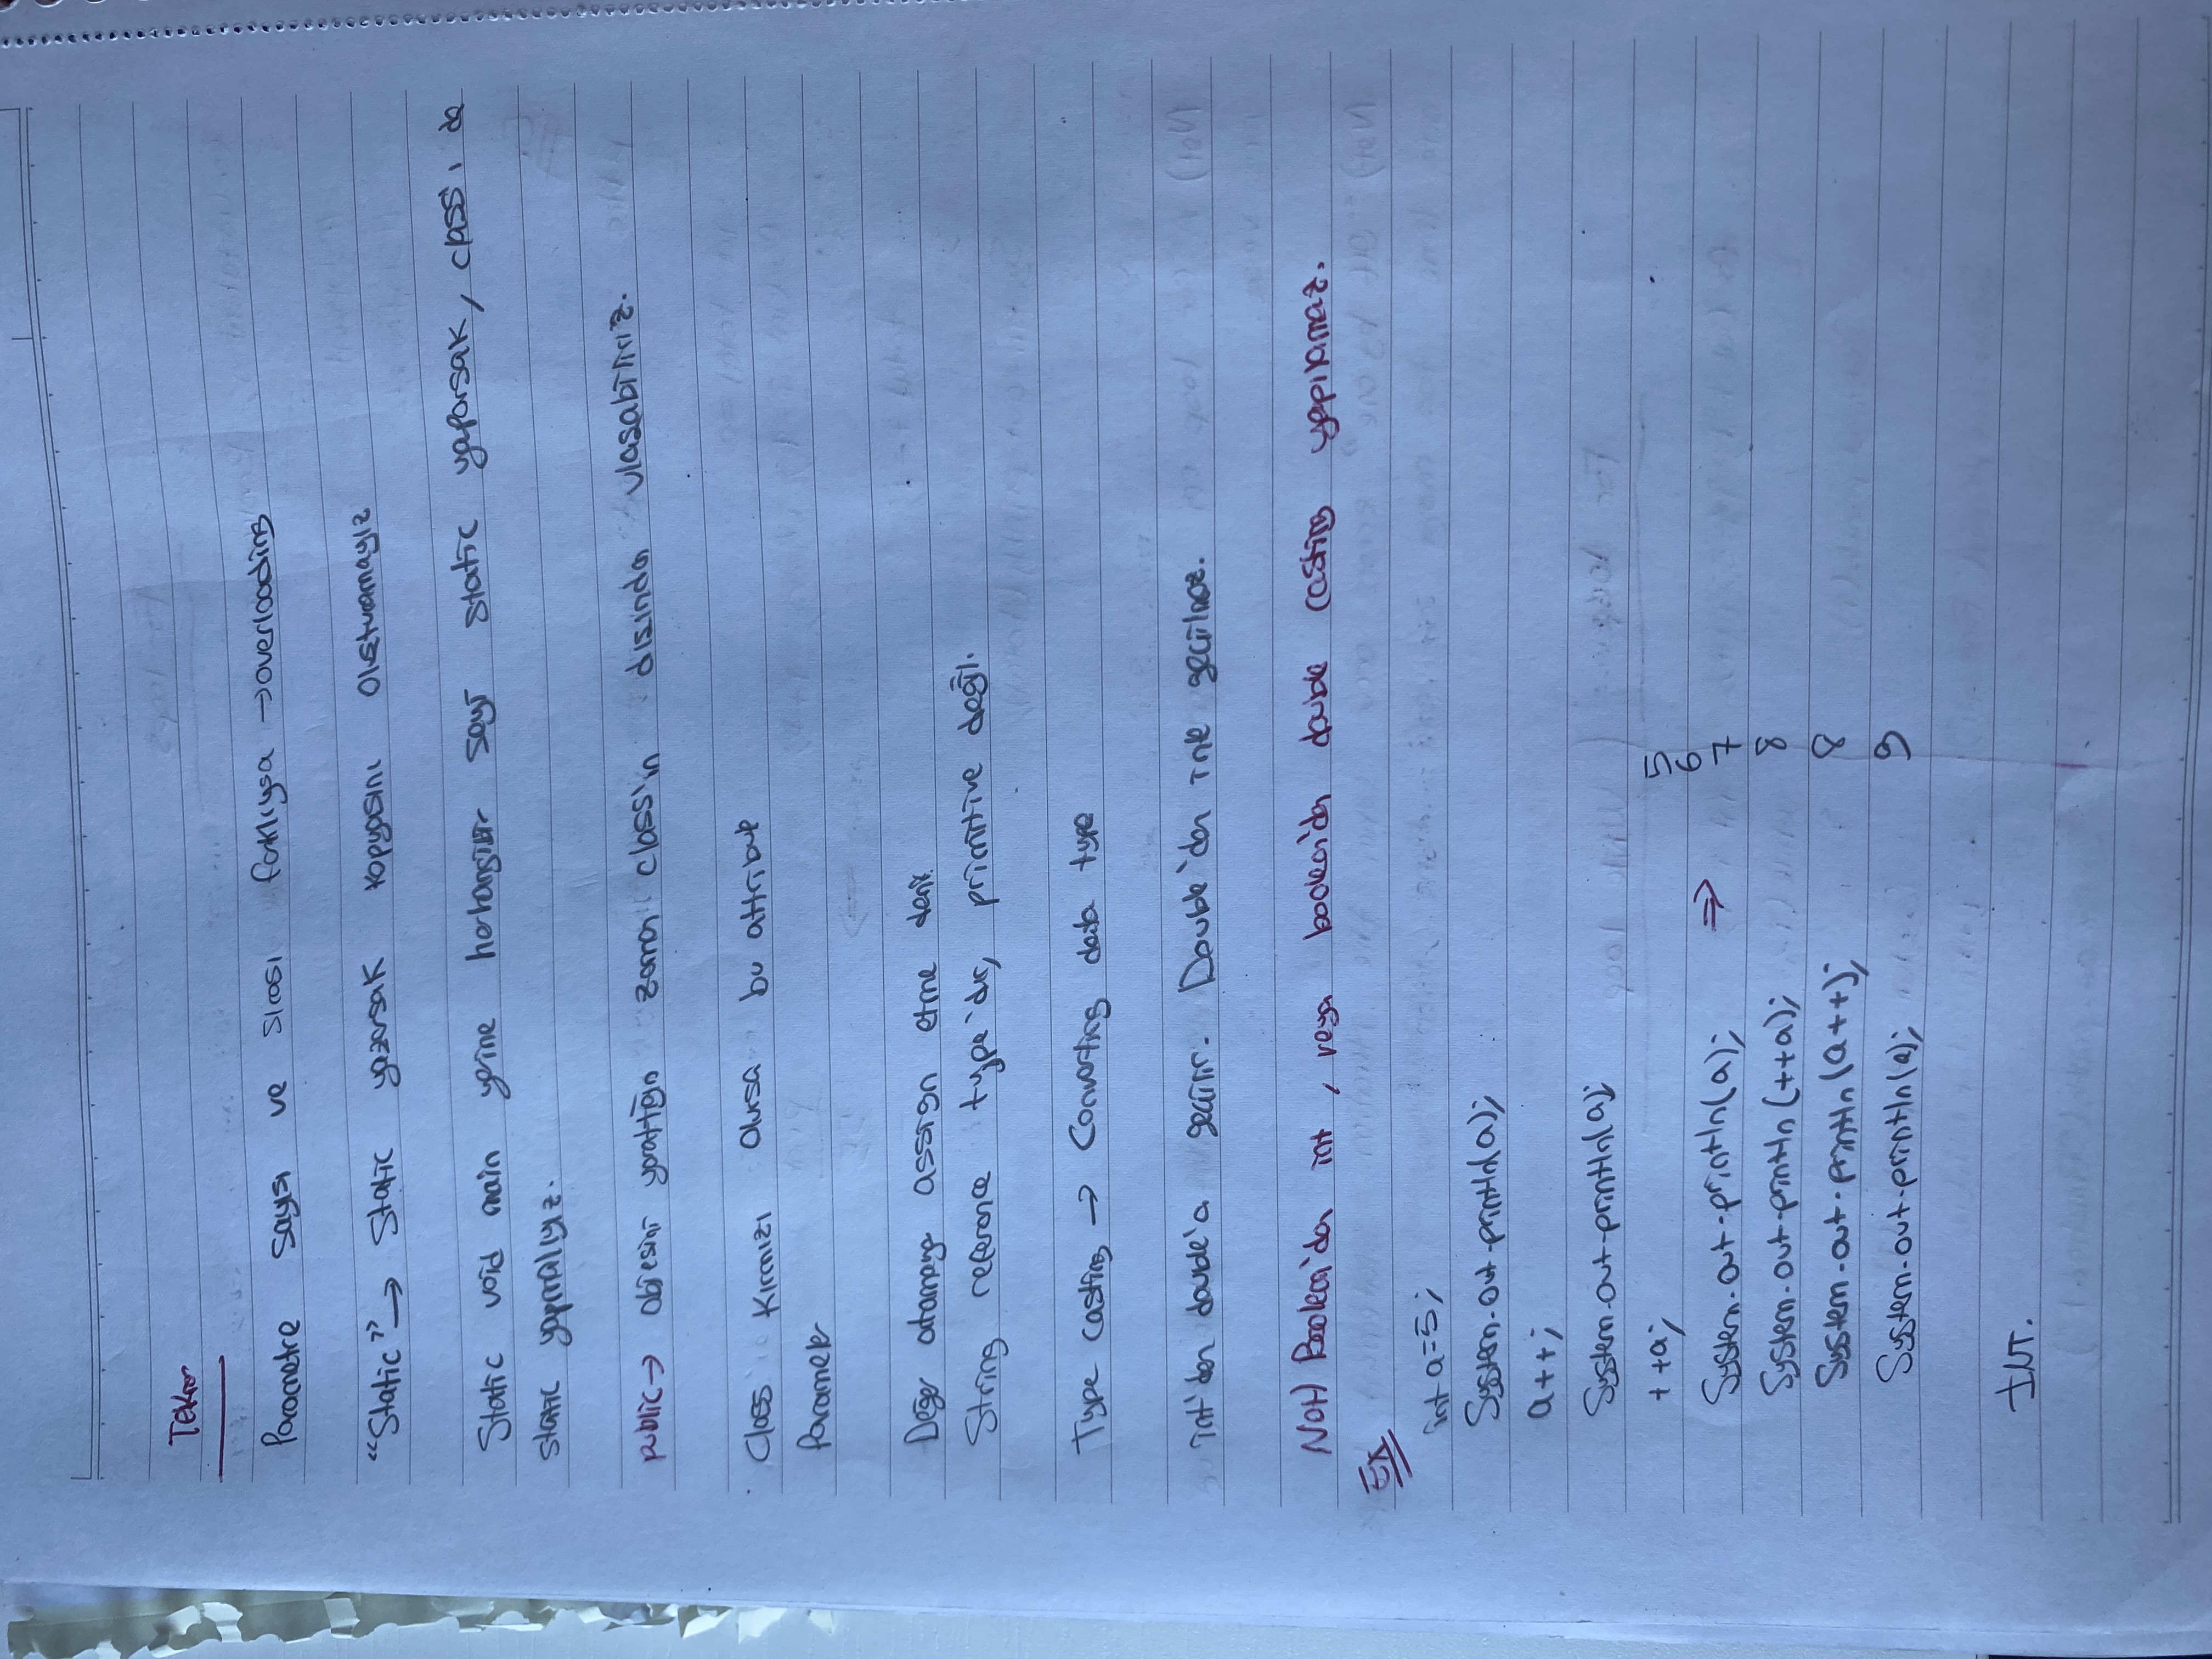 Tekrar
Parametre sayısı ve sırası farklıysa → overloading
"Static" → Static yazarsak kopyasını oluşturamayız
Static void main yerine herhangibir şeyi static yaparsak, class'ı da
static yapmalıyız.
public → objesini yarattığın zaman class'ın dısından ulasabiliriz.
Class kırmızı olursa bu attribute
Parametre
Değer atamaya assign etme denir.
String reference type'dır, primitive değil.
Type casting → Converting data type
int'den double'a geçilir. Double'dan int'e geçilmez.
Not) Boolean'dan int, veya boolean'dan double casting yapılamaz.
Ex
int a=5;
System.out.println(a);
a++;
System.out.println(a);
++a; 5
6
System.out.println(a); ⇒ 7
System.out.println(++a); 8
System.out.println(a++); 8
System.out.println(a); 9
INT.